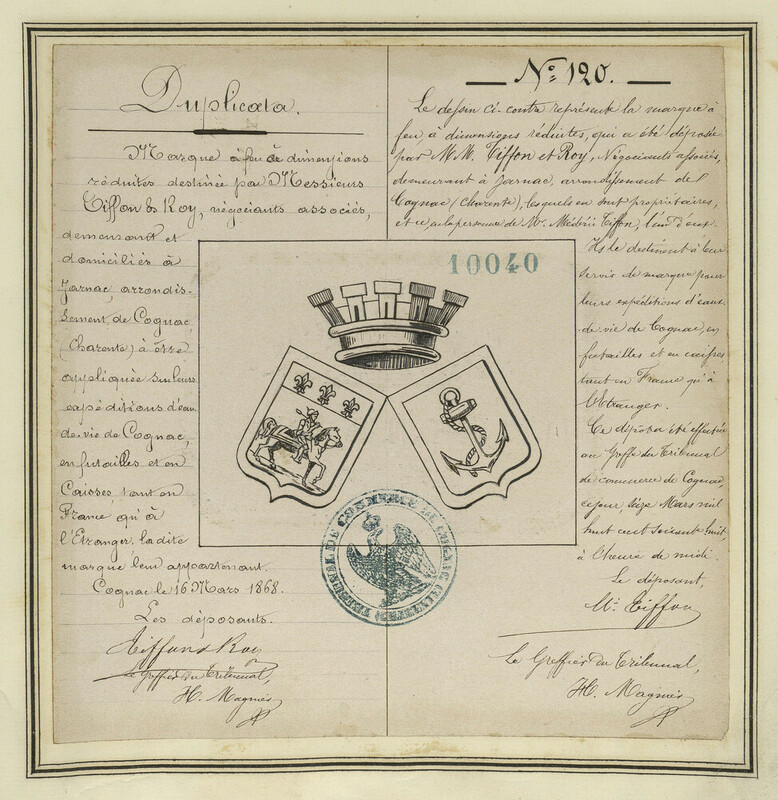 Duplicata.
Marque à feu de dimensions
réduites destinée par Messieurs
Tiffon & Roy, négociants associés,
demeurant et
domiciliés à
Jarnac, arrondis-
sement de Cognac
(Charente) à être
appliquée sur leurs
expéditions d'eau
de vie de Cognac,
en futailles et en
Caisses, tant en
France qu'à
l'Etranger, la dite
marque leur appartenant.
Cognac le 16 Mars 1868.
Les déposants.
Tiffon & Roy
Le Greffier du Tribunal,
H. Magnier
N.º 120.
Le dessin ci-contre représente la marque à
feu à dimensions réduites, qui a été déposée
par M.M. Tiffon et Roy, Négociants associés,
demeurant à Jarnac, arrondissement de
Cognac (Charente), lesquels en sont propriétaires,
et ce en la personne de Mr. Tiffon, l'un d'eux.
Ils le destinent à leur
servir de marque pour
leurs expéditions d'eaux-
de-vie de Cognac, en
futailles et en caisses
tant en France qu'à
l'Etranger.
Ce dépôt a été effectué
au Greffe du Tribunal
de commerce de Cognac,
ce jour seize Mars mil
huit cent soixante huit,
à l'heure de midi.
Le déposant,
Mc. Tiffon
Le Greffier du Tribunal,
H. Magnier
10040
TRIBUNAL DE COMMERCE DE COGNAC (CHARENTE)